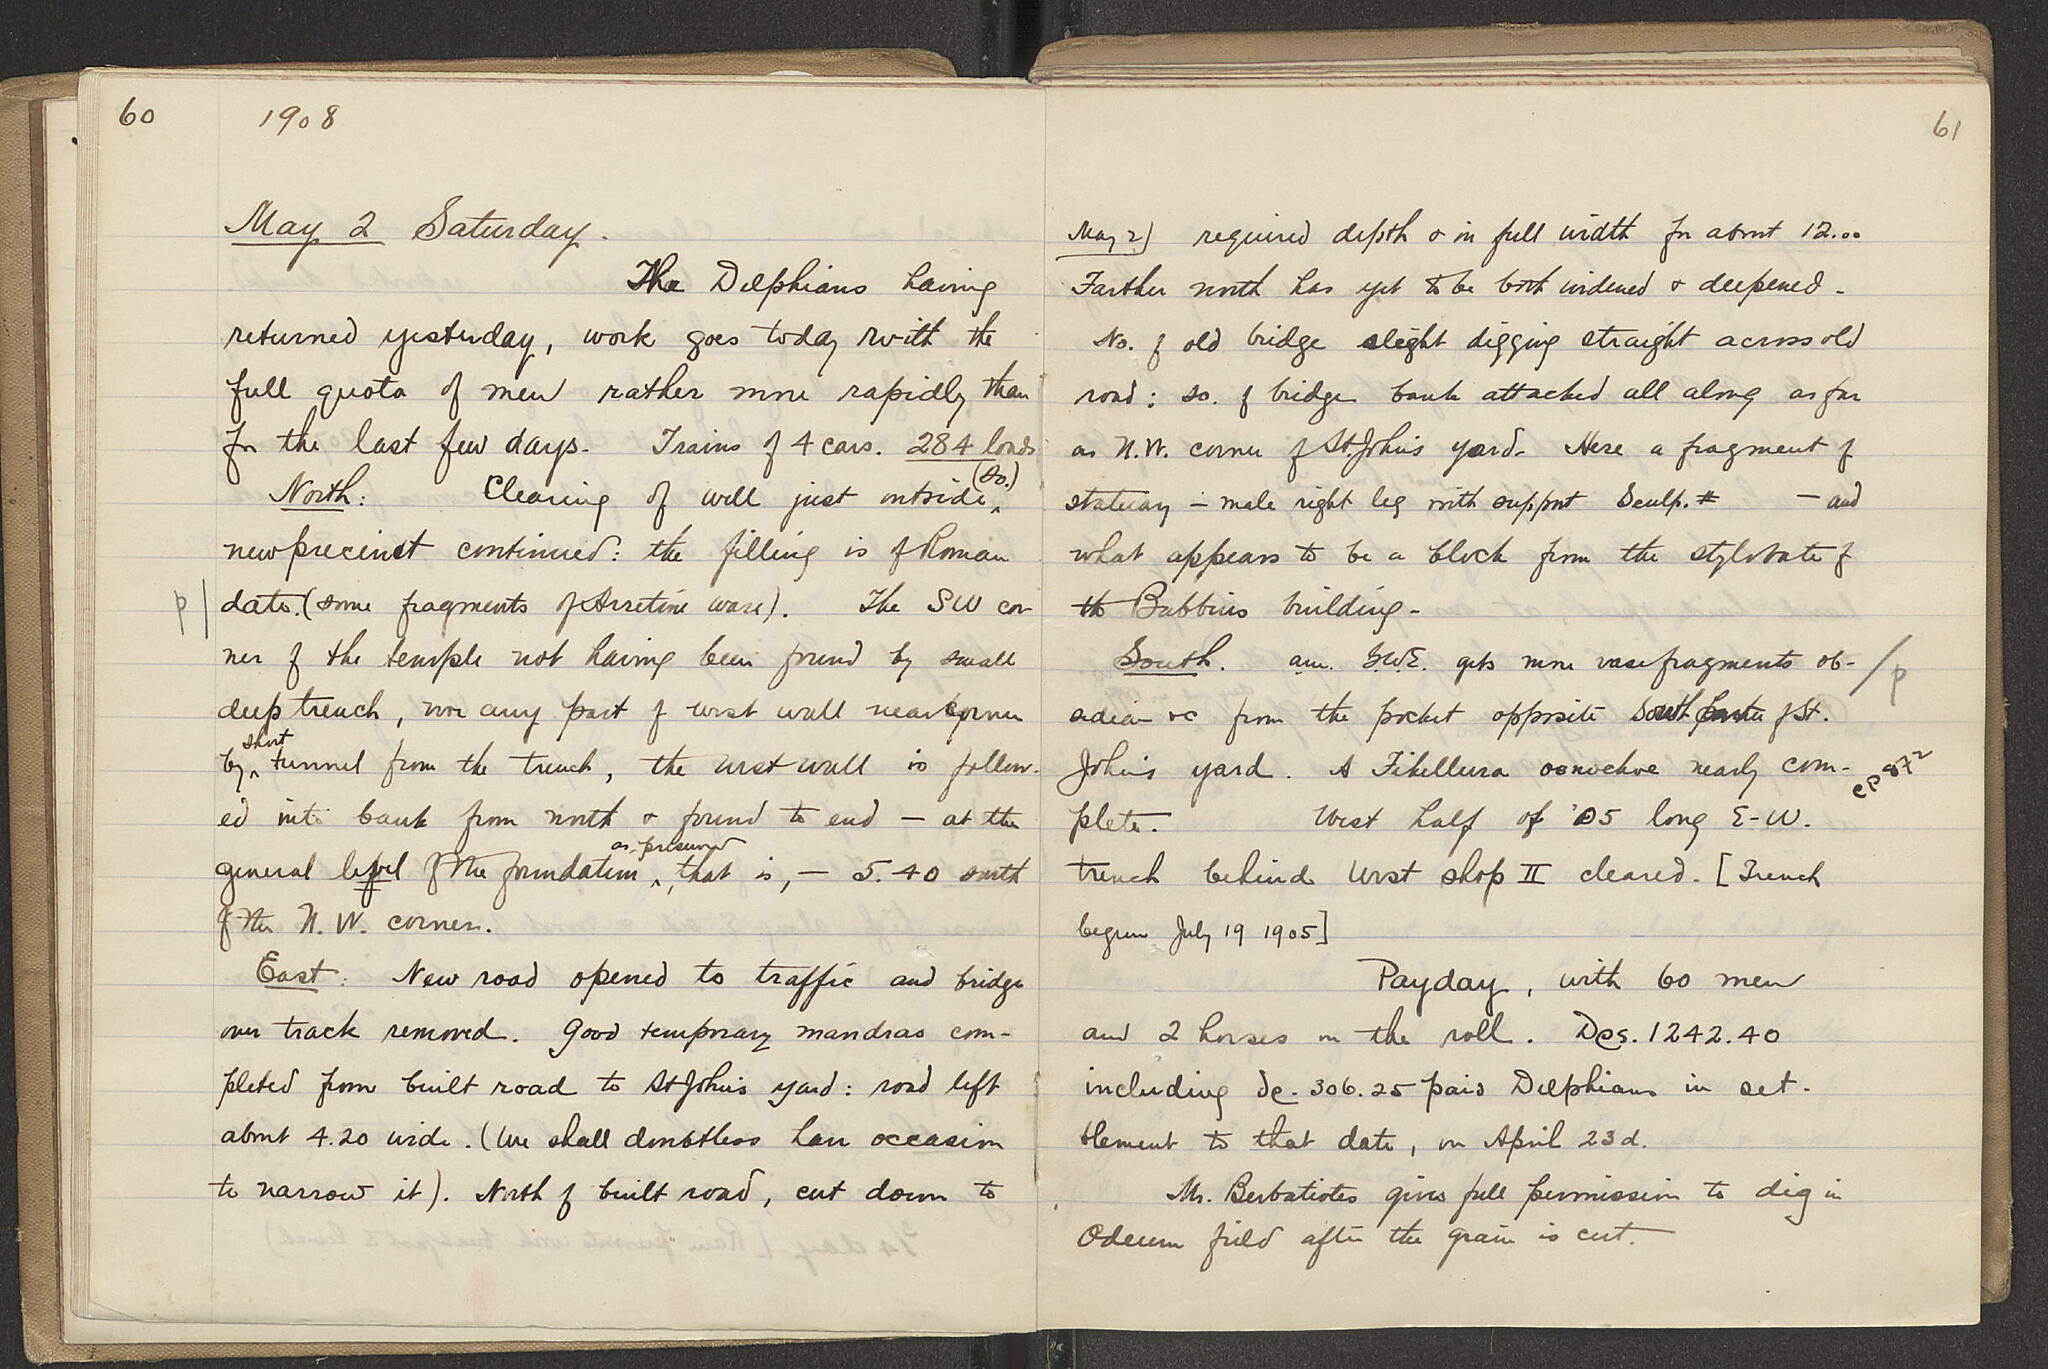 60 1908
May 2 Saturday.
The Delphians having
returned yesterday, work goes today with the
full quota of men rather more rapidly than
for the last few days. Trains of 4 cars. 284 loads
North: Clearing of well just outside (so.)
new precinct continued: the filling is of Roman
p| date. (some fragments of Arretine ware). The SW cor-
ner of the temple not having been found by small
deep trench, nor any part of west wall near corner
by short tunnel from the trench, the west wall is follow-
ed into bank from north & found to end – at the
general level of the foundation as preserved, that is, – 5.40 south
of the N.W. corner.
East: New road opened to traffic and bridge
over track removed. Good temporary mandras com-
pleted from built road to St John's yard: road left
about 4.20 wide. (We shall doubtless have occasion
to narrow it). North of built road, cut down to
61
May 2) required depth & in full width for about 12.00
Farther north has yet to be both widened & deepened.
No. of old bridge slight digging straight across old
road: so. of bridge bank attacked all along as far
as N.W. corner of St. John's yard. Here a fragment of
statuary – male right leg with support Sculp. # – and
what appears to be a block from the stylobate of
th Babbius building.
South. am. G.W.E. gets more vase fragments ob- /p
sidian &c from the pocket opposite South of St.
John's yard. A Fikellura oenochoe nearly com- CP 872
plete. West half of '05 long E-W.
trench behind West shop II cleared. [Trench
begun July 19 1905]
Payday, with 60 men
and 2 horses on the roll. Dcs. 1242.40
including dc. 306.25 paid Delphians in set-
tlement to that date, on April 23d.
Mr. Berbatiotes gives full permission to dig in
Odeum field after the grain is cut.